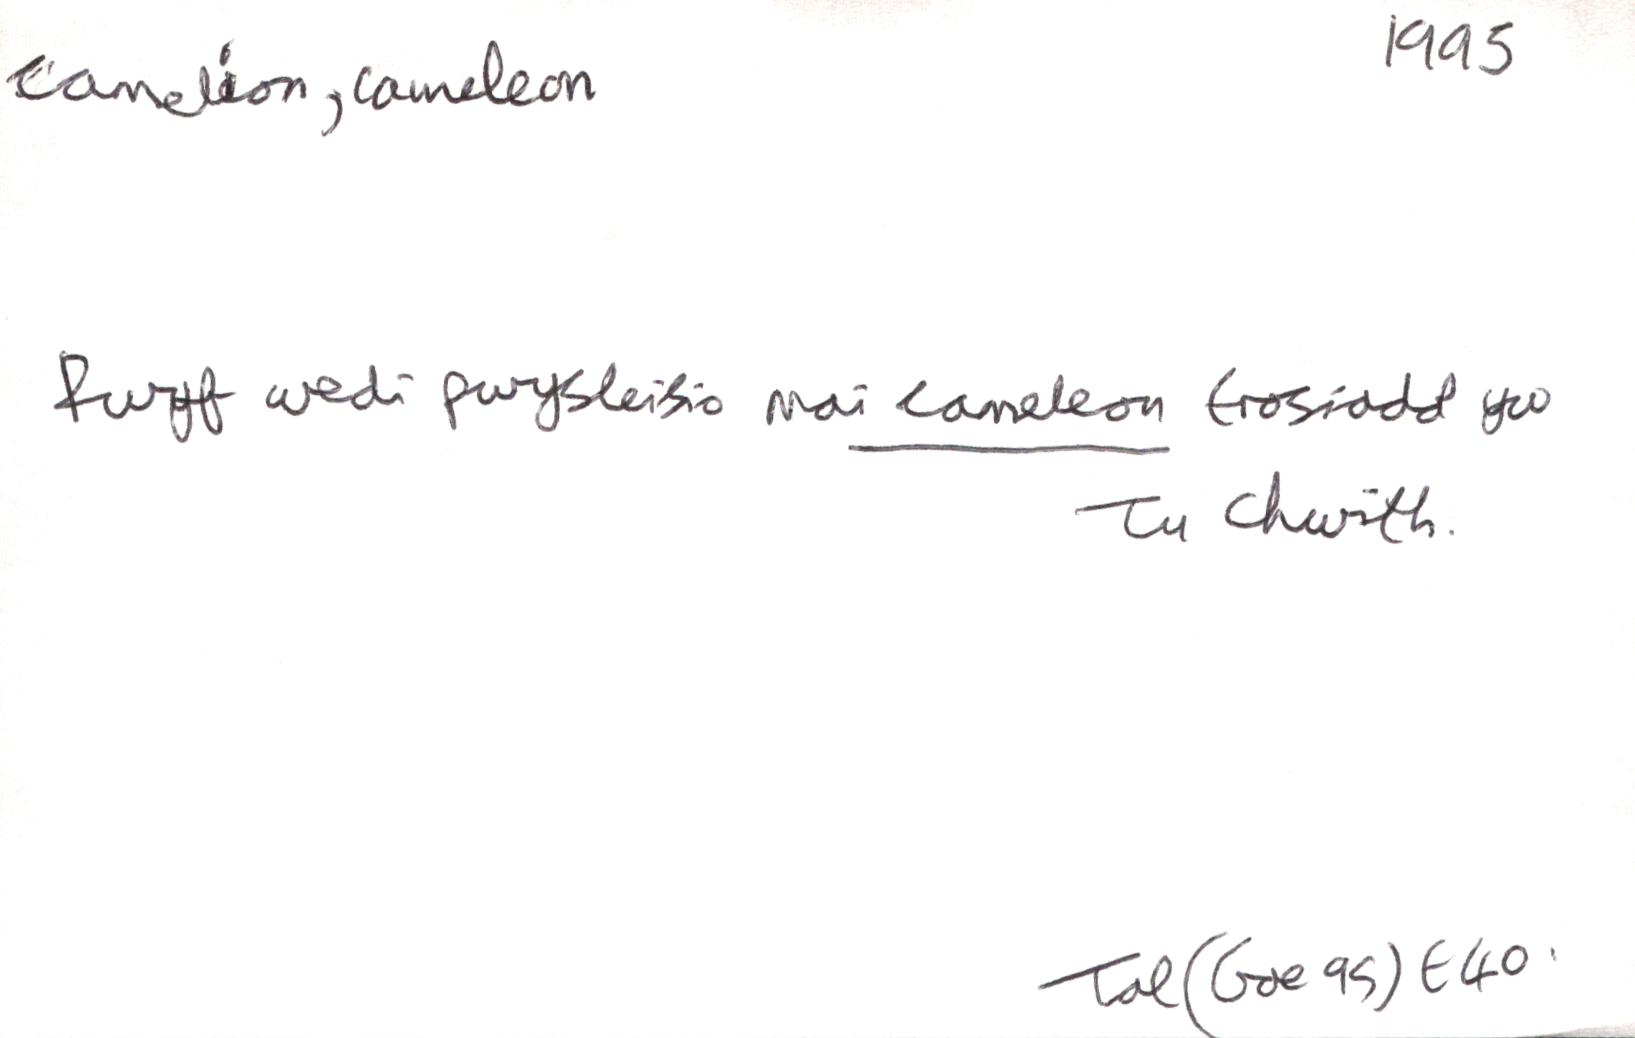 cameleion, cameleon
1995
Rwyf wedi pwysleisio mai cameleon trosiadd yw
Tu Chwith.
Tal (Goe 95) t 40.